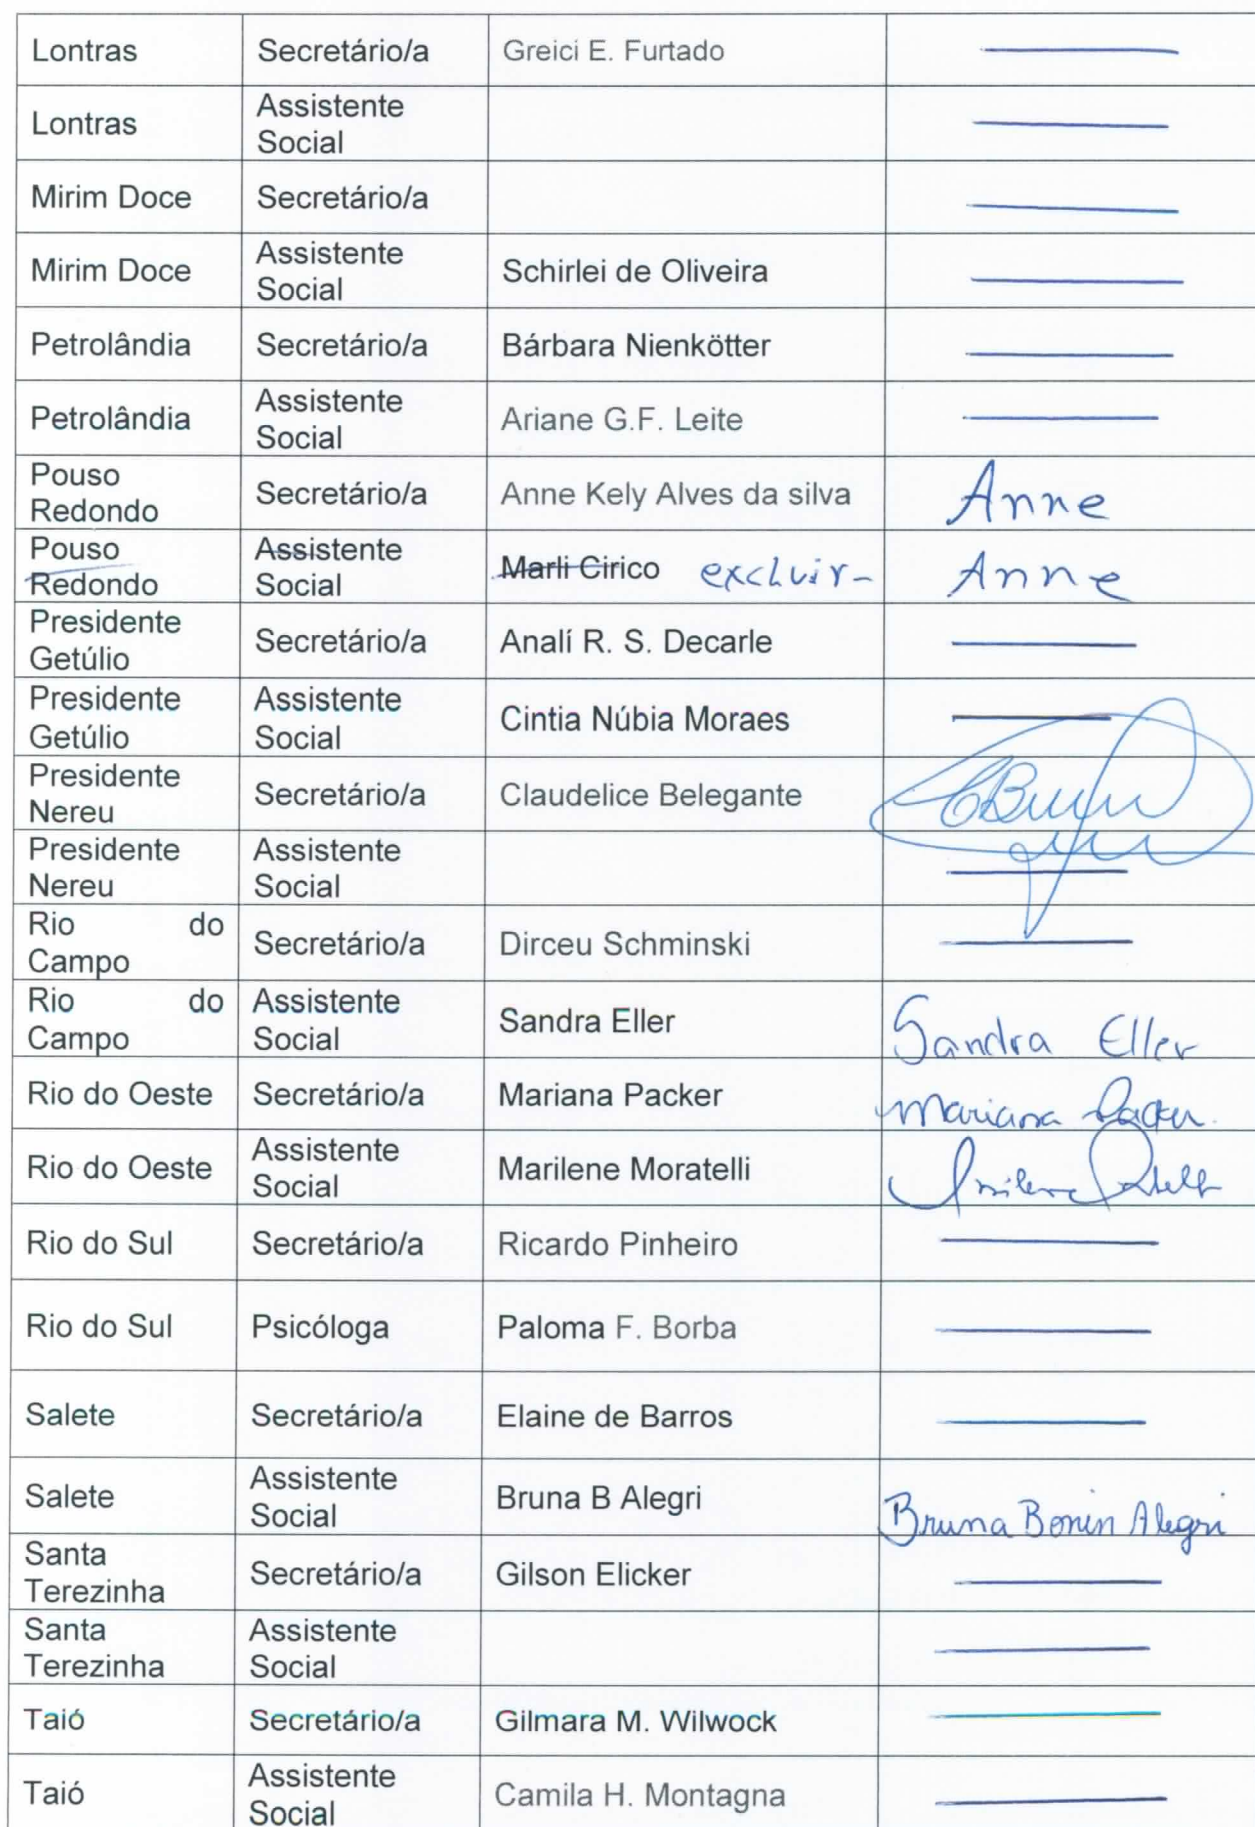 Lontras Secretário/a Greici E. Furtado
Lontras Assistente Social
Mirim Doce Secretário/a
Mirim Doce Assistente Social Schirlei de Oliveira
Petrolândia Secretário/a Bárbara Nienkötter
Petrolândia Assistente Social Ariane G.F. Leite
Pouso Redondo Secretário/a Anne Kely Alves da silva Anne
Pouso Redondo Assistente Social Marli Cirico excluir- Anne
Presidente Getúlio Secretário/a Analí R. S. Decarle
Presidente Getúlio Assistente Social Cintia Núbia Moraes
Presidente Nereu Secretário/a Claudelice Belegante
Presidente Nereu Assistente Social
Rio do Campo Secretário/a Dirceu Schminski
Rio do Campo Assistente Social Sandra Eller Sandra Eller
Rio do Oeste Secretário/a Mariana Packer Mariana Packer.
Rio do Oeste Assistente Social Marilene Moratelli
Rio do Sul Secretário/a Ricardo Pinheiro
Rio do Sul Psicóloga Paloma F. Borba
Salete Secretário/a Elaine de Barros
Salete Assistente Social Bruna B Alegri Bruna Bonin Alegri
Santa Terezinha Secretário/a Gilson Elicker
Santa Terezinha Assistente Social
Taió Secretário/a Gilmara M. Wilwock
Taió Assistente Social Camila H. Montagna